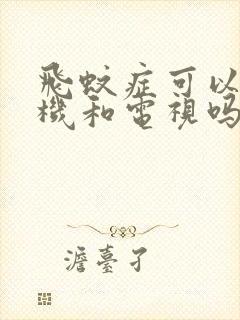 飛蚊症可以
機和電視吗
澹臺子